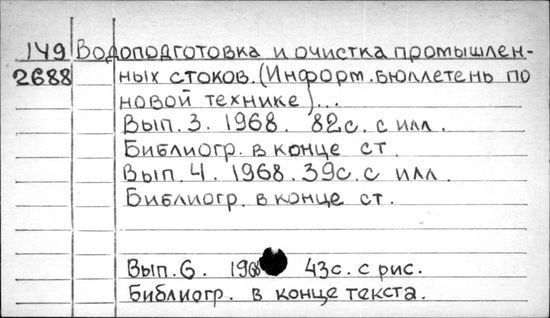 149 Водоподготовка и очистка промышлен-
2688 ных стоков. (Информ. бюллетень по
новой технике)...
Вып. 3. 1968. 82с. с илл.
Библиогр. в конце ст.
Вып. 4. 1968. 39с. с илл.
Библиогр. в конце ст.
Вып. 6. 1968 43с. с рис.
Библиогр. в конце текста.